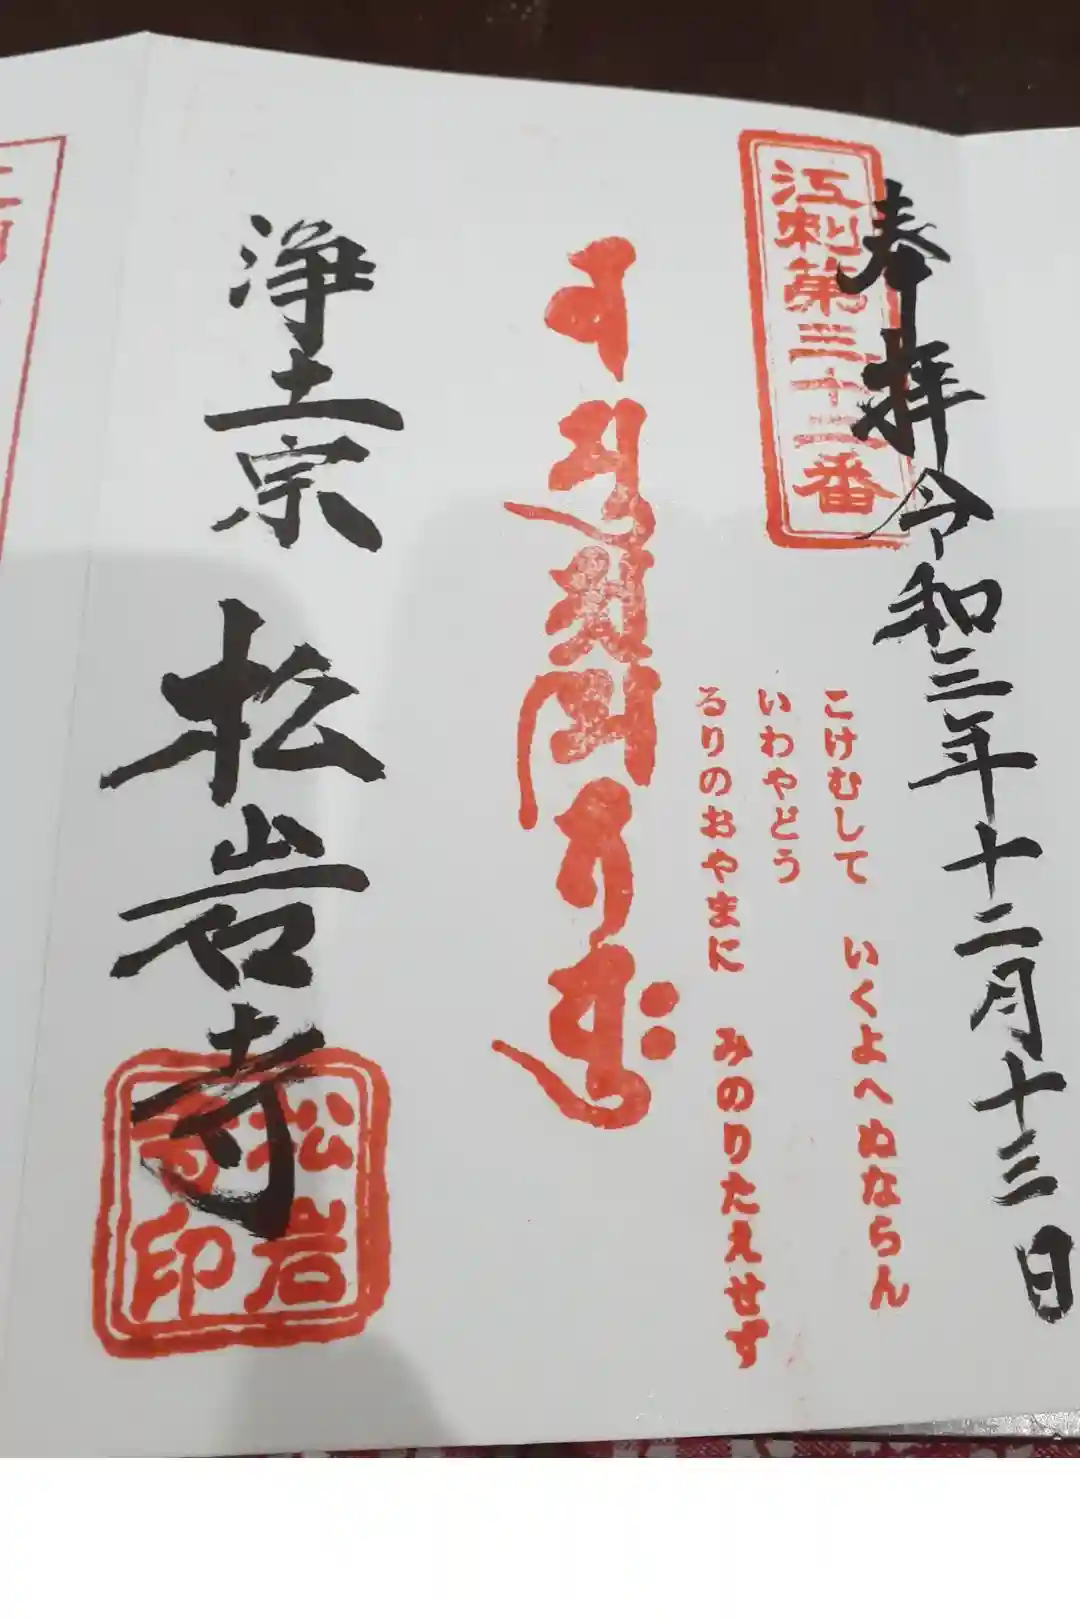 奉拝 令和三年十二月十三日
江刺第三十二番
こけむして いくよへぬならん
いわやどう
るりのおやまに みのりたえせず
浄土宗 松岩寺
松岩
寺印